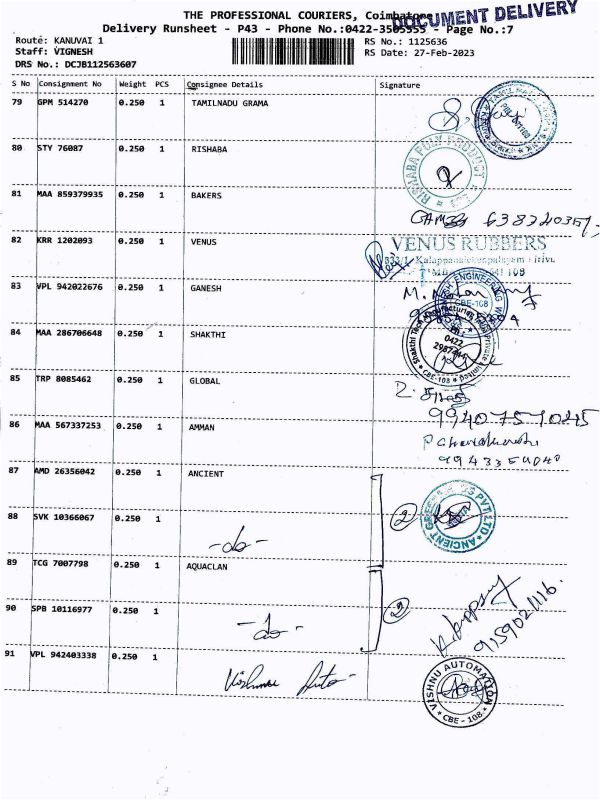 THE PROFESSIONAL COURIERS, Coimbatore
DOCUMENT DELIVERY
Delivery Runsheet - P43 - Phone No.:0422-3505555 - Page No.:7
Route: KANUVAI 1
RS No.: 1125636
Staff: VIGNESH
RS Date: 27-Feb-2023
DRS No.: DCJB112563607
S No Consignment No Weight PCS Consignee Details Signature
79 GPM 514270 0.250 1 TAMILNADU GRAMA
80 STY 76087 0.250 1 RISHABA
RISHABA POLY PRODUCT
81 MAA 859379935 0.250 1 BAKERS
82 KRR 1202093 0.250 1 VENUS
VENUS RUBBERS
83 VPL 942022676 0.250 1 GANESH
ENGINEERING
CBE-108
84 MAA 286706648 0.250 1 SHAKTHI
0422
CBE-108
85 TRP 8085462 0.250 1 GLOBAL
9940757045
86 MAA 567337253 0.250 1 AMMAN
87 AMD 26356042 0.250 1 ANCIENT
ANCIENT PVT LTD
88 SVK 10366067 0.250 1 -do- 2
89 TCG 7007798 0.250 1 AQUACLAN
90 SPB 10116977 0.250 1 -do- 2
91 VPL 942403338 0.250 1 Vishnu Auto
VISHNU AUTOMATION
CBE - 108